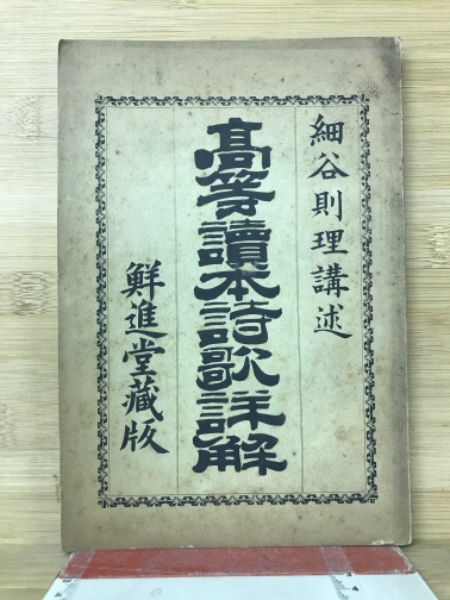 細谷則理講述
高等讀本詩歌詳解
鮮進堂藏版